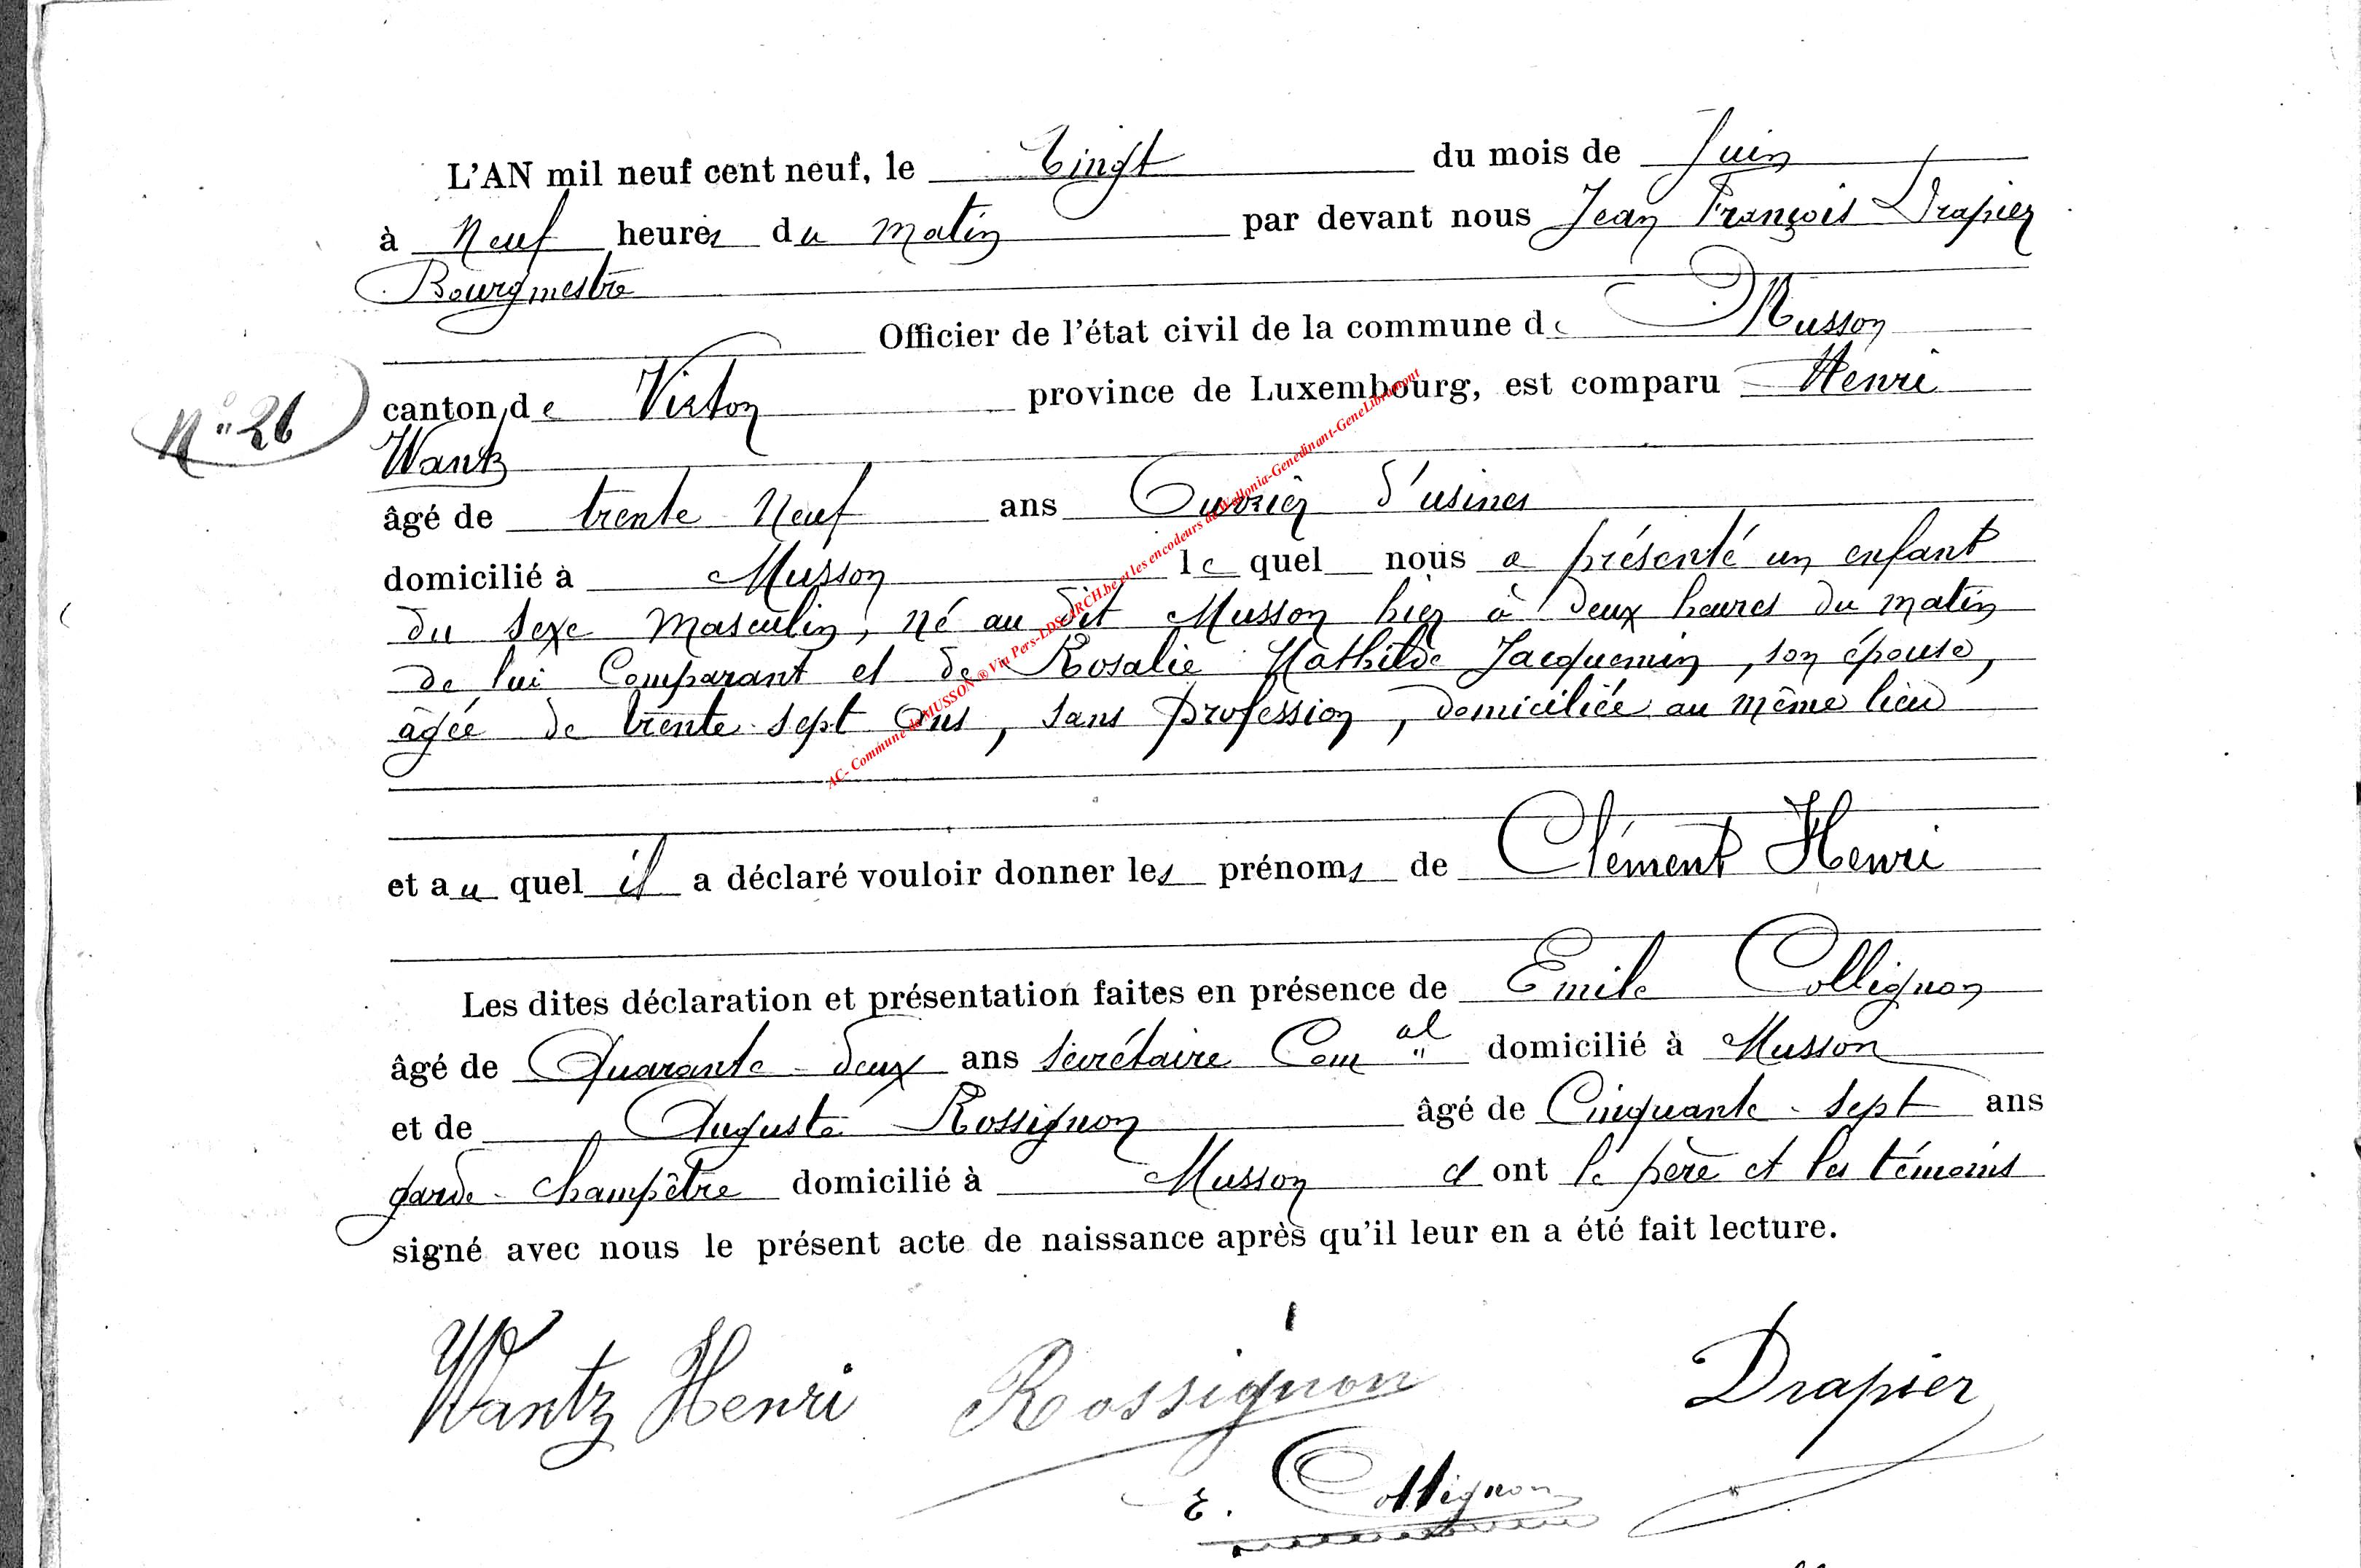 L'AN mil neuf cent neuf, le Vingt du mois de Juin
à Neuf heures du matin par devant nous Jean François Drapier
Bourgmestre
Officier de l'état civil de la commune de Musson
N° 26
canton de Virton province de Luxembourg, est comparu Henri
Wantz
âgé de trente Neuf ans Ouvrier d'usines
domicilié à Musson lequel nous a présenté un enfant
du sexe Masculin, né au dit Musson hier à deux heures du matin
de lui Comparant et de Rosalie Mathilde Jacquemin, son épouse,
âgée de trente-sept ans, sans profession, domiciliée au même lieu
et auquel il a déclaré vouloir donner les prénoms de Clément Henri
Les dites déclaration et présentation faites en présence de Emile Collignon
âgé de Quarante-deux ans secrétaire Comal domicilié à Musson
et de Auguste Rossignon âgé de Cinquante-sept ans
garde-champêtre domicilié à Musson et ont le père et les témoins
signé avec nous le présent acte de naissance après qu'il leur en a été fait lecture.
Wantz Henri Rossignon Drapier
E. Collignon
AC- Commune de MUSSON ® Via Pers-LDS-ARCH.be et les encodeurs de Wallonia-Genedinant-GeneLibramont